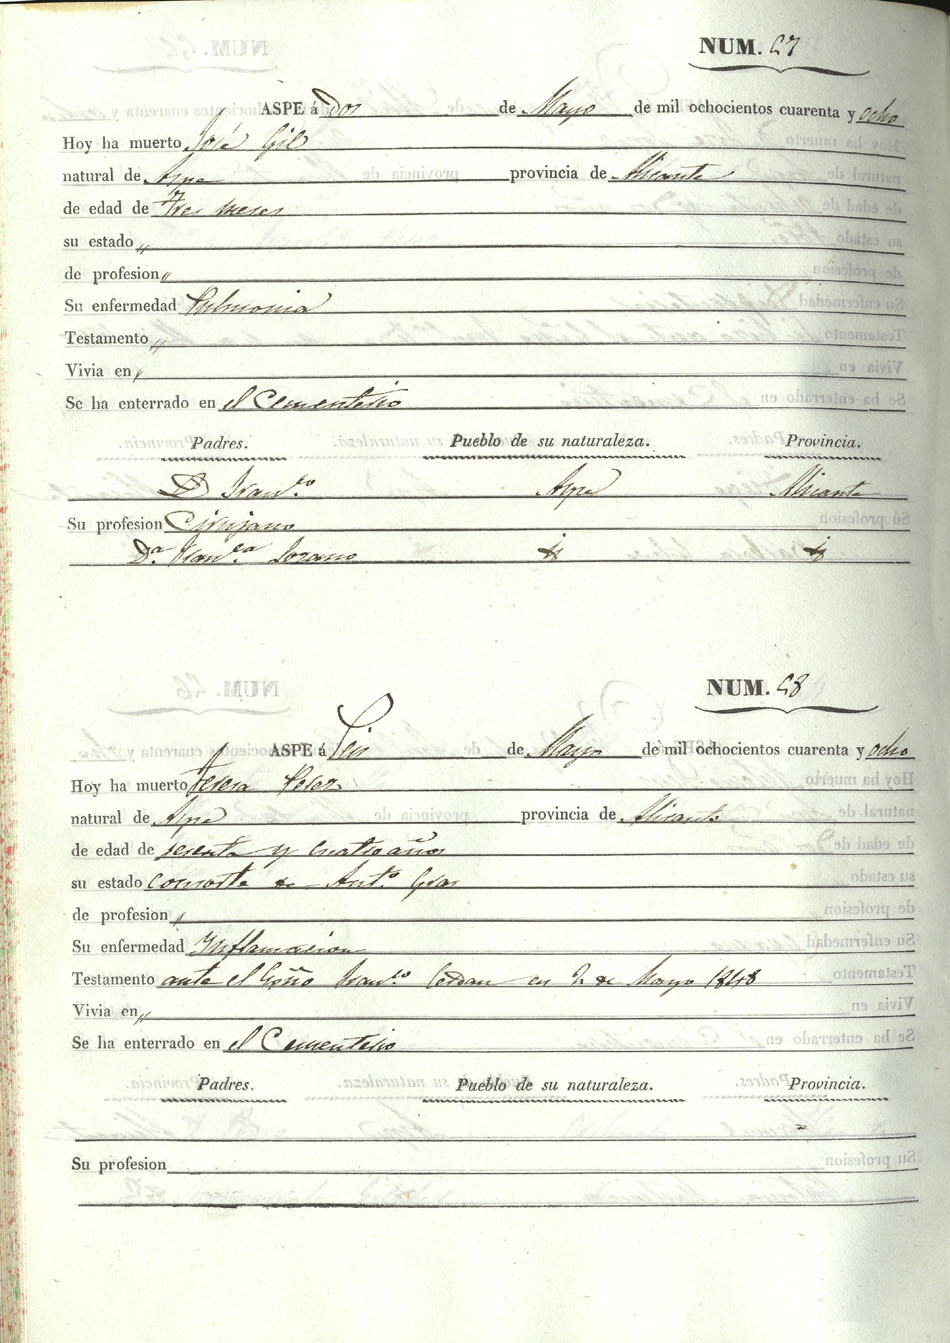 NUM. 27
ASPE á Dos de Mayo de mil ochocientos cuarenta y ocho
Hoy ha muerto José Gil
natural de Aspe provincia de Alicante
de edad de tres meses
su estado „
de profesion „
Su enfermedad Pulmonia
Testamento „
Vivia en „
Se ha enterrado en el Cementerio
Padres. Pueblo de su naturaleza. Provincia.
D Fran.co Aspe Alicante
Su profesion Cirujano
Da. Fran.ca Lozano id id
NUM. 28
ASPE á Seis de Mayo de mil ochocientos cuarenta y ocho
Hoy ha muerto Teresa Perez
natural de Aspe provincia de Alicante
de edad de sesenta y cuatro años
su estado consorte de Ant.o Gras
de profesion „
Su enfermedad Inflamacion
Testamento ante el Essno Fran.co Cerdan en 2 de Mayo 1848
Vivia en „
Se ha enterrado en el Cementerio
Padres. Pueblo de su naturaleza. Provincia.
Su profesion